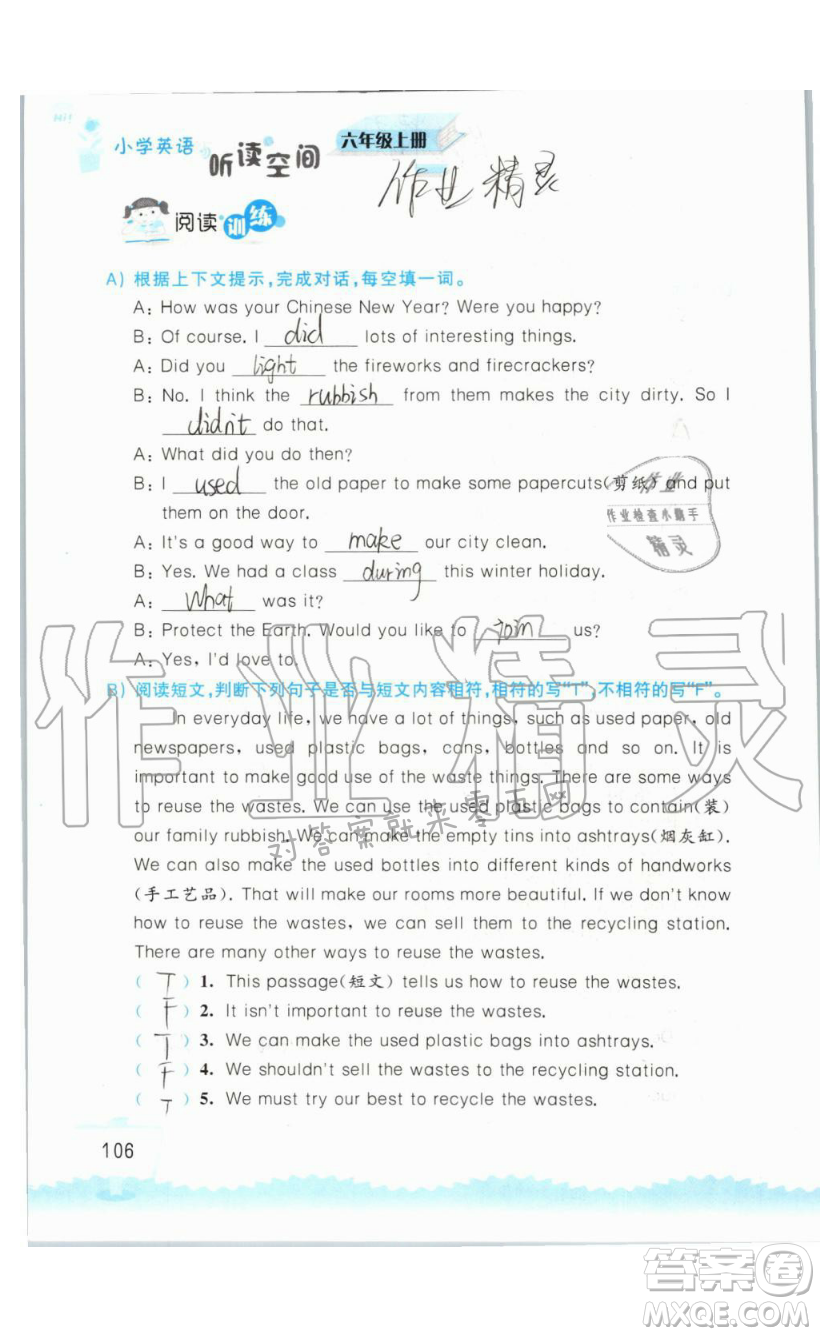 小学英语 听读空间 六年级上册
作业精灵
阅读训练
A) 根据上下文提示,完成对话,每空填一词。
A: How was your Chinese New Year? Were you happy?
B: Of course. I did lots of interesting things.
A: Did you light the fireworks and firecrackers?
B: No. I think the rubbish from them makes the city dirty. So I
didn't do that.
A: What did you do then?
B: I used the old paper to make some papercuts(剪纸)and put
them on the door.
A: It's a good way to make our city clean.
B: Yes. We had a class during this winter holiday.
A: What was it?
B: Protect the Earth. Would you like to join us?
A: Yes, I'd love to.
作业
作业检查小助手
精灵
作业精灵
B) 阅读短文,判断下列句子是否与短文内容相符,相符的写"T",不相符的写"F"。
In everyday life, we have a lot of things, such as used paper, old
newspapers, used plastic bags, cans, bottles and so on. It is
important to make good use of the waste things. There are some ways
to reuse the wastes. We can use the used plastic bags to contain(装)
our family rubbish. We can make the empty tins into ashtrays(烟灰缸).
We can also make the used bottles into different kinds of handworks
(手工艺品). That will make our rooms more beautiful. If we don't know
how to reuse the wastes, we can sell them to the recycling station.
There are many other ways to reuse the wastes.
对答案就来零五网
( T ) 1. This passage(短文) tells us how to reuse the wastes.
( F ) 2. It isn't important to reuse the wastes.
( T ) 3. We can make the used plastic bags into ashtrays.
( F ) 4. We shouldn't sell the wastes to the recycling station.
( T ) 5. We must try our best to recycle the wastes.
106
答案圈
MXQE.COM